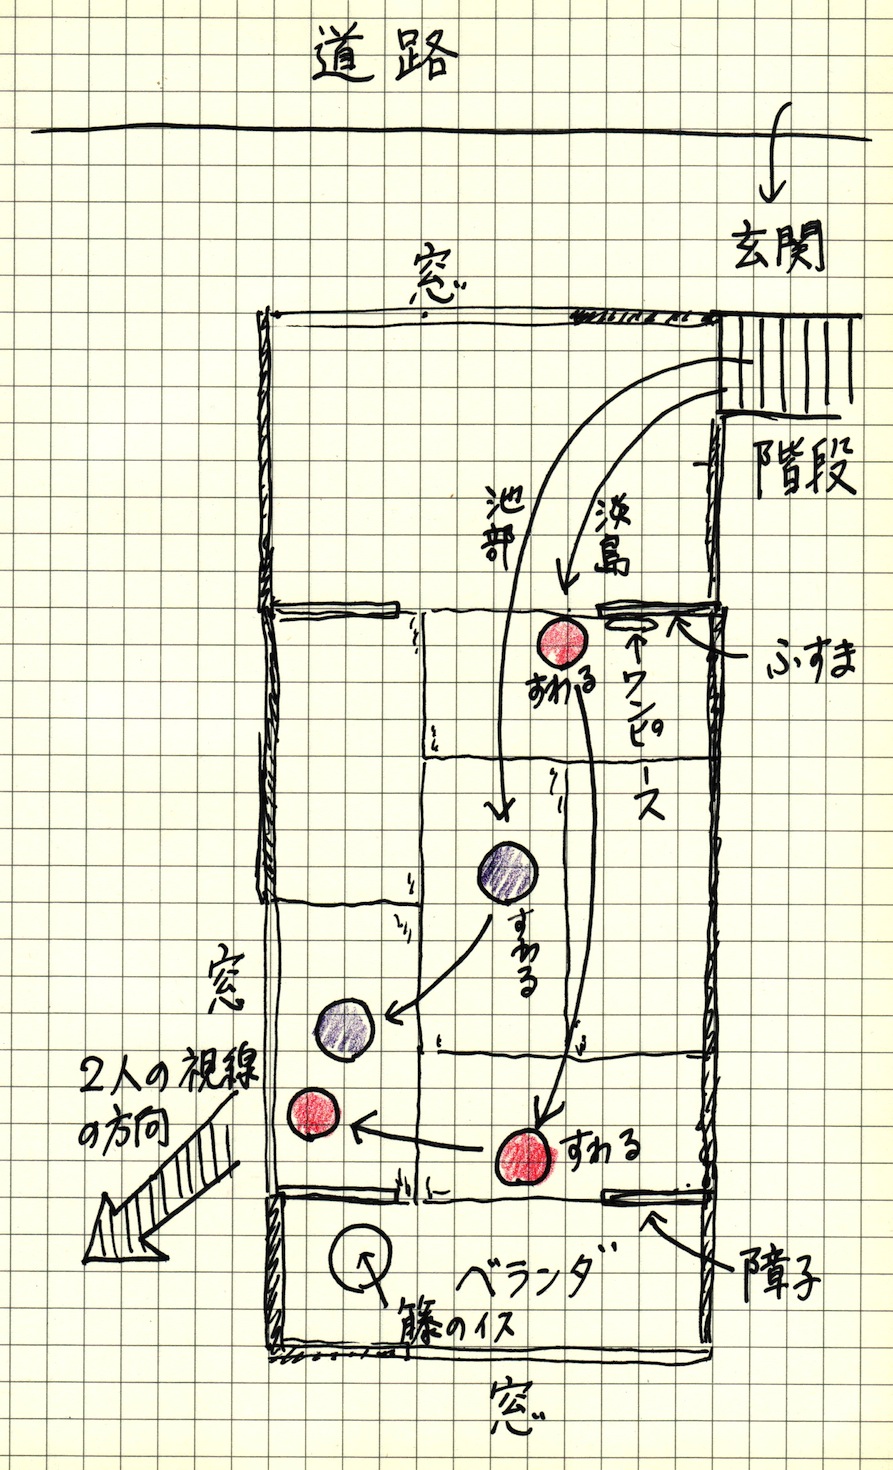 道路
玄関
窓
階段
池部
淡島
ふすま
すわる
ワンピース
すわる
窓
2人の視線
の方向
すわる
障子
ベランダ
籐のイス
窓